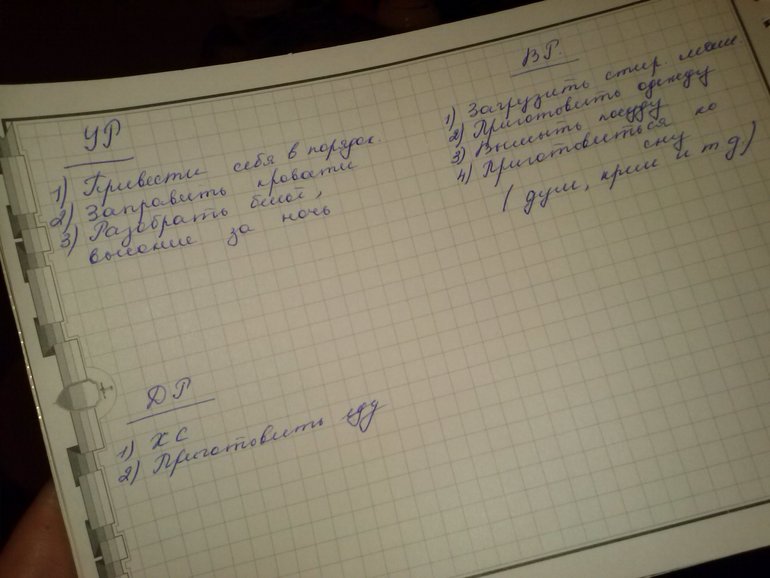 УР
1) Привести себя в порядок.
2) Заправить кровати
3) Разобрать бельё,
высохшие за ночь
ВР.
1) Загрузить стир. маш.
2) Приготовить одежду
3) Вымыть посуду
4) Приготовиться ко
сну
( душ, крем и т д)
ДР
1) ХС
2) Приготовить еду